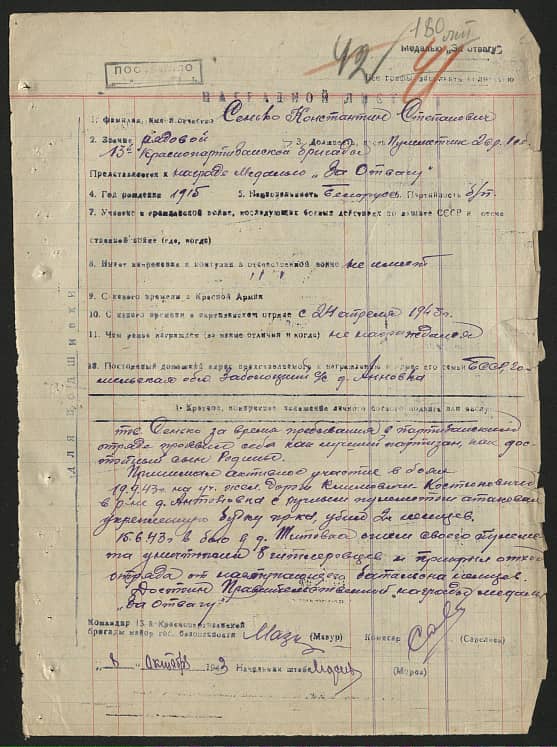 180
42/
91
Медалью „За отвагу"
НАГРАДНОЙ ЛИСТ
1. Фамилия, имя и отчество Сенько Константин Степанович
2. Звание рядовой 3. Должность, часть Пулеметчик
13й Краснопартизанской бригады
Представляется к награде Медалью „За Отвагу"
4. Год рождения 1915 5. Национальность Белорус Партийность б/п
7. Участие в гражданской войне, последующих боевых действиях по защите СССР и отече-
ственной войне (где, когда)
8. Имеет ли ранения и контузии в отечественной войне не имеет
9. С какого времени в Красной Армии
10. С какого времени в партизанском отряде с 24 апреля 1943 г.
11. Чем ранее награжден (за какие отличия и когда) не награждался
12. Постоянный домашний адрес представляемого к награждению и адрес его семьи БССР, Го-
мельская обл д. Анновка
ДЛЯ ПОДШИВКИ
1. Краткое, конкретное изложение личного боевого подвига или заслуг
тов. Сенько за время пребывания в партизанском
отряде проявил себя как лучший партизан, как дос-
тойный сын Родины.
Принимал активное участие в боях
на уч. жел. дороги
в р-не д. Антоновка с ручным пулеметом атаковал
укрепленную будку убил 2х немцев.
15.6.43г. в бою у д. огнем своего пулеме-
та уничтожил 8 гитлеровцев и прикрыл отход
отряда от наступающего батальона немцев.
Достоин Правительственной награды медали
„За Отвагу"
Командир 13 й Краснопартизанской
бригады майор гос. безопасности (Мазур) Комиссар (Савельев)
„8" Октября 1943 Начальник штаба (Мороз)